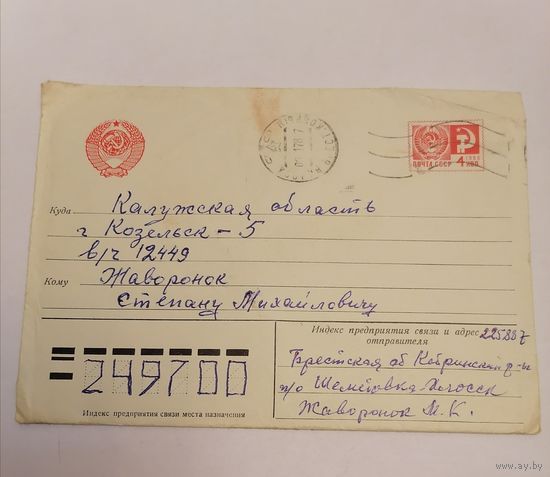 ПОЧТА СССР 4 КОП
1966
Куда Калужская область
г Козельск-5
в/ч 12449
Кому Жаворонок
Степану Михайловичу
Индекс предприятия связи и адрес отправителя
225887
Брестская об Кобринский р-н
п/о
Жаворонок М.К.
249700
Индекс предприятия связи места назначения
www.ay.by